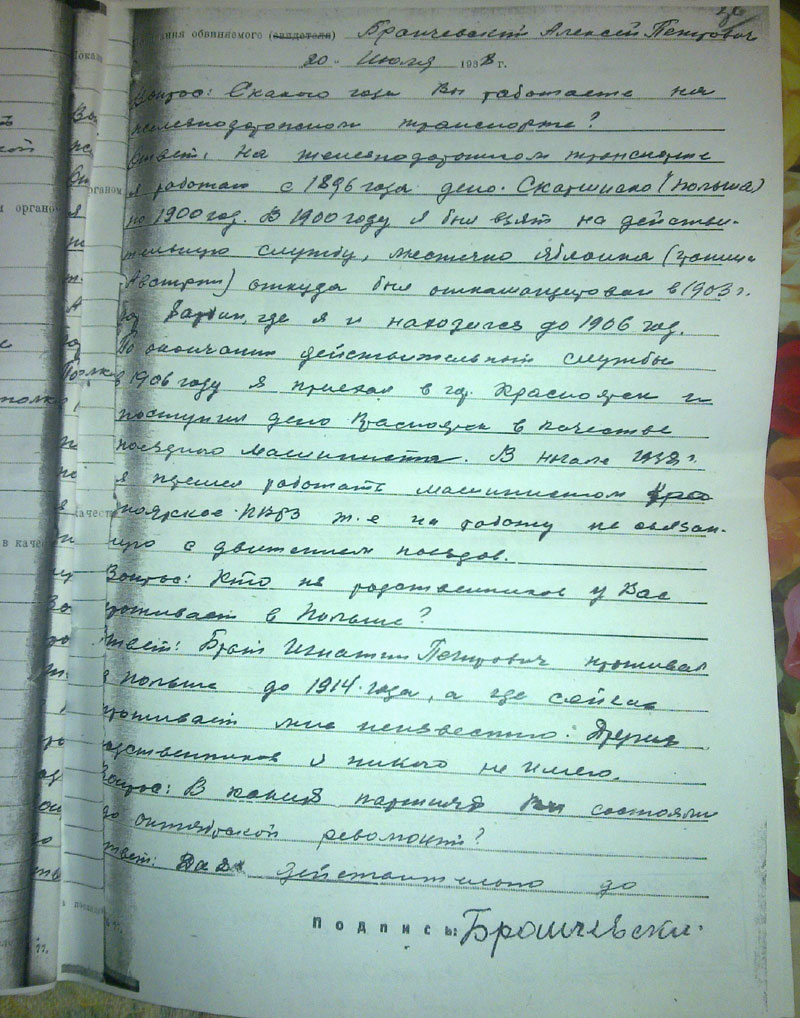 ания обвиняемого (свидетеля) Браичевский Алексей Петрович
20 Июля 1938 г.
Вопрос: С какого года Вы работаете на
железнодорожном транспорте?
Ответ: На железнодорожном транспорте
я работаю с 1896 года депо (Польша)
по 1900 год. В 1900 году я был взят на действи-
тельную службу, местечко (границ
Австрии) откуда был откомандирован в 1903 г.
где я и находился до 1906 год.
По окончании действительной службы
в 1906 году я приехал в гор. Красноярск и
поступил депо Красноярск в качестве
поездного машиниста. В начале 1938 г.
я перешел работать машинистом Крас
ноярское ПВРЗ т.е на работу не связан-
ную с движением поездов.
Вопрос: Кто из родственников у Вас
проживает в Польше?
Ответ: Брат Игнатий Петрович проживал
в Польше до 1914 года, а где сейчас
проживает мне неизвестно. Других
родственников я никого не имею.
Вопрос: В каких партиях Вы состояли
до октябрьской революции?
твет: Да я действительно до
Подпись: Браичевский